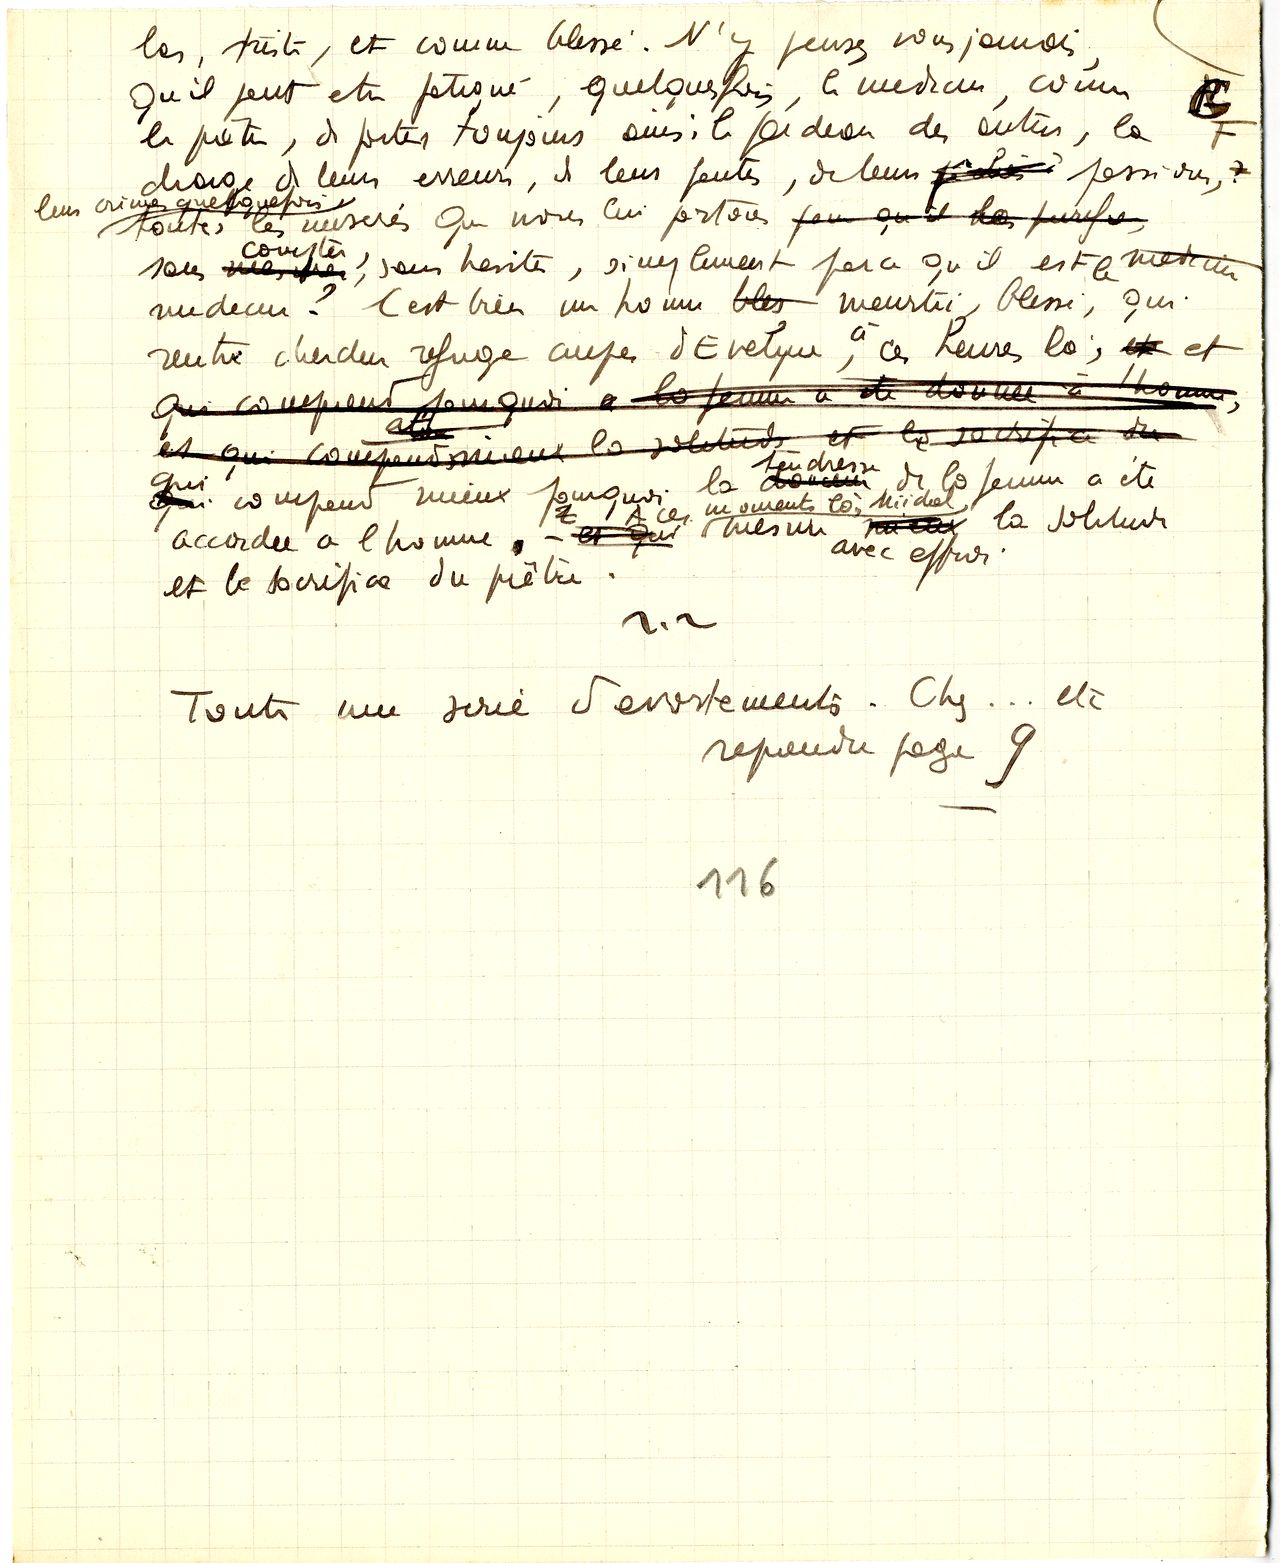 las, triste, et comme blessé. N'y pensez vous jamais,
Qu'il peut etre fatigué, quelquefois, le medecin, comme
le prêtre, de porter toujours ainsi le fardeau des autres, la
F
charge de leurs erreurs, de leurs fautes, de leurs péchés passions, ?
leurs crimes quelquefois
toutes les miseres que nous lui portons pour qu'il les purifie,
compter,
sans hesiter, simplement parce qu'il est le medecin
medecin ? C'est bien un homme bles meurtri, blessé, qui
rentre chercher refuge aupres d'Evelyne, à ces heures là, et et
qui comprend pourquoi a la femme a été donnée à l'homme,
et qui comprend mieux la solitude et le sacrifice du
tendresse
qui
qui comprend mieux pourquoi la douceur de la femme a été
A ces moments là, Michel,
accordée a l'homme, - et qui mesure mieux la solitude
avec effroi.
et le sacrifice du prêtre.
Toute une serie d'avortements. Chez ... etc
reprendre page 9
116